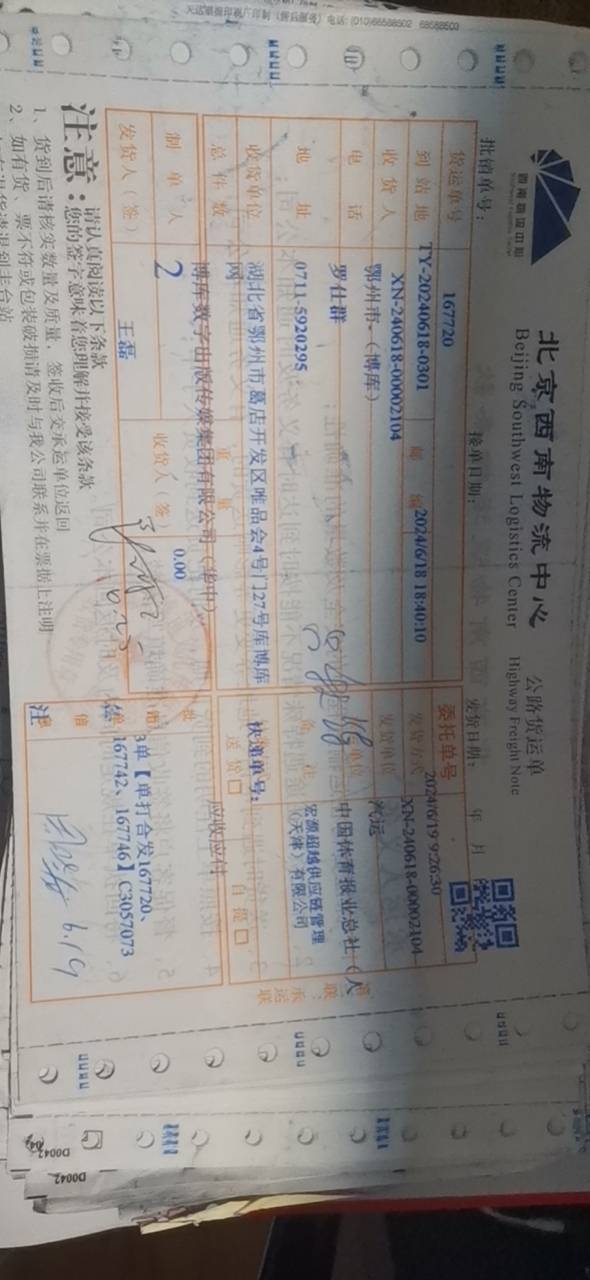 天运维雅印视厂印制 (售后服务) 电话: (010)66588502 68588500
西南物流中心
Southwest Logistics Center
北京西南物流中心 公路货运单
Beijing Southwest Logistics Center Highway Freight Note
批销单号: 接单日期: 发货日期: 年 月
货运单号 167720 2024/6/18 18:40:10 委托单号 2024/6/19 9:26:30
到站地 TY-20240618-0301 邮编 发货方式 XN-240618-00002104
收货人 XN-240618-00002104 发货单位 汽运
电话 鄂州市 (博库) 中国体育报业总社 (人
地址 罗仕群 备注 宏源超越供应链管理
0711-5920295 (天津) 有限公司
收货单位 湖北省鄂州市葛店开发区唯品会4号门27号库博库 快递单号:
网 送货□ 自提□
总件数 博库数字出版传媒集团有限公司 (华中) 重量 应收应付
制单人 2 0.00
发货人 (签) 王磊 收货人 (签)
3单【单打合发167720、
167742、167746】C3057073
备注
承运联
6.19
注意:
请认真阅读以下条款
您的签字意味着您理解并接受该条款
1、货到后请核实数量及质量, 签收后交承运单位返回
2、如有货、票不符或包装破损请及时与我公司联系并在票据上注明
D0042
D0042